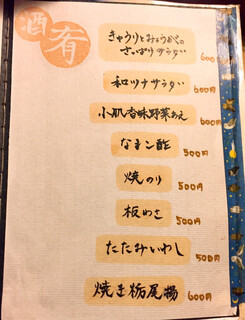 酒肴
きゅうりとみょうがの
さっぱりサラダ 600円
和ツナサラダ 600円
小肌香味野菜あえ 600円
なまこ酢 500円
焼のり 500円
板わさ 500円
たたみいわし 500円
焼き栃尾揚 600円